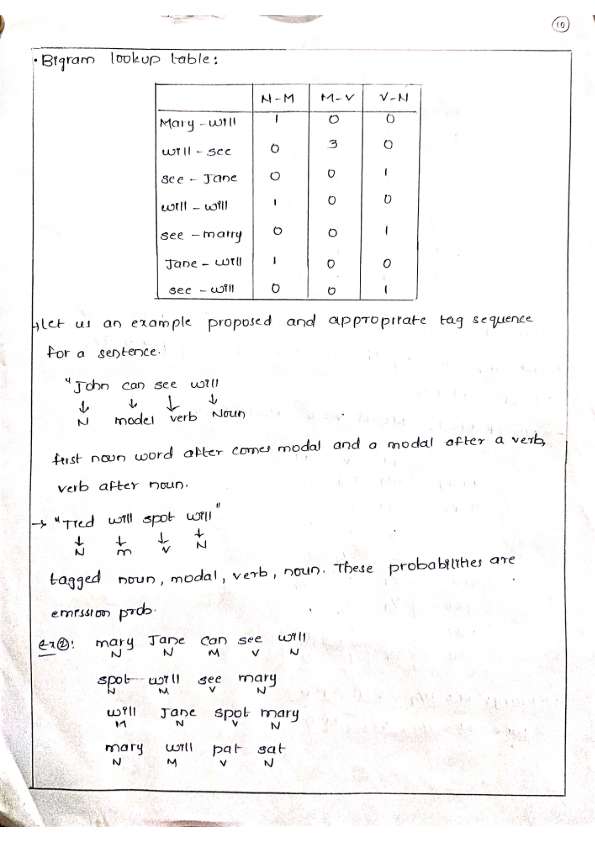 10
• Bigram lookup table:
N-M M-V V-N
Mary-will 1 0 0
will-see 0 3 0
see-Jane 0 0 1
will-will 1 0 0
see-marry 0 0 1
Jane-will 1 0 0
see-will 0 0 1
→ Let us an example proposed and appropirate tag sequence
for a sentence.
"John can see will
↓ ↓ ↓ ↓
N model verb Noun
first noun word after comes modal and a modal after a verb,
verb after noun.
→ "Tied will spot will"
↓ ↓ ↓ ↓
N m V N
tagged noun, modal, verb, noun. These probabilities are
emission prob.
ex②: mary Jane can see will
N N M V N
spot will see mary
N M V N
will Jane spot mary
M N V N
mary will pat sat
N M V N